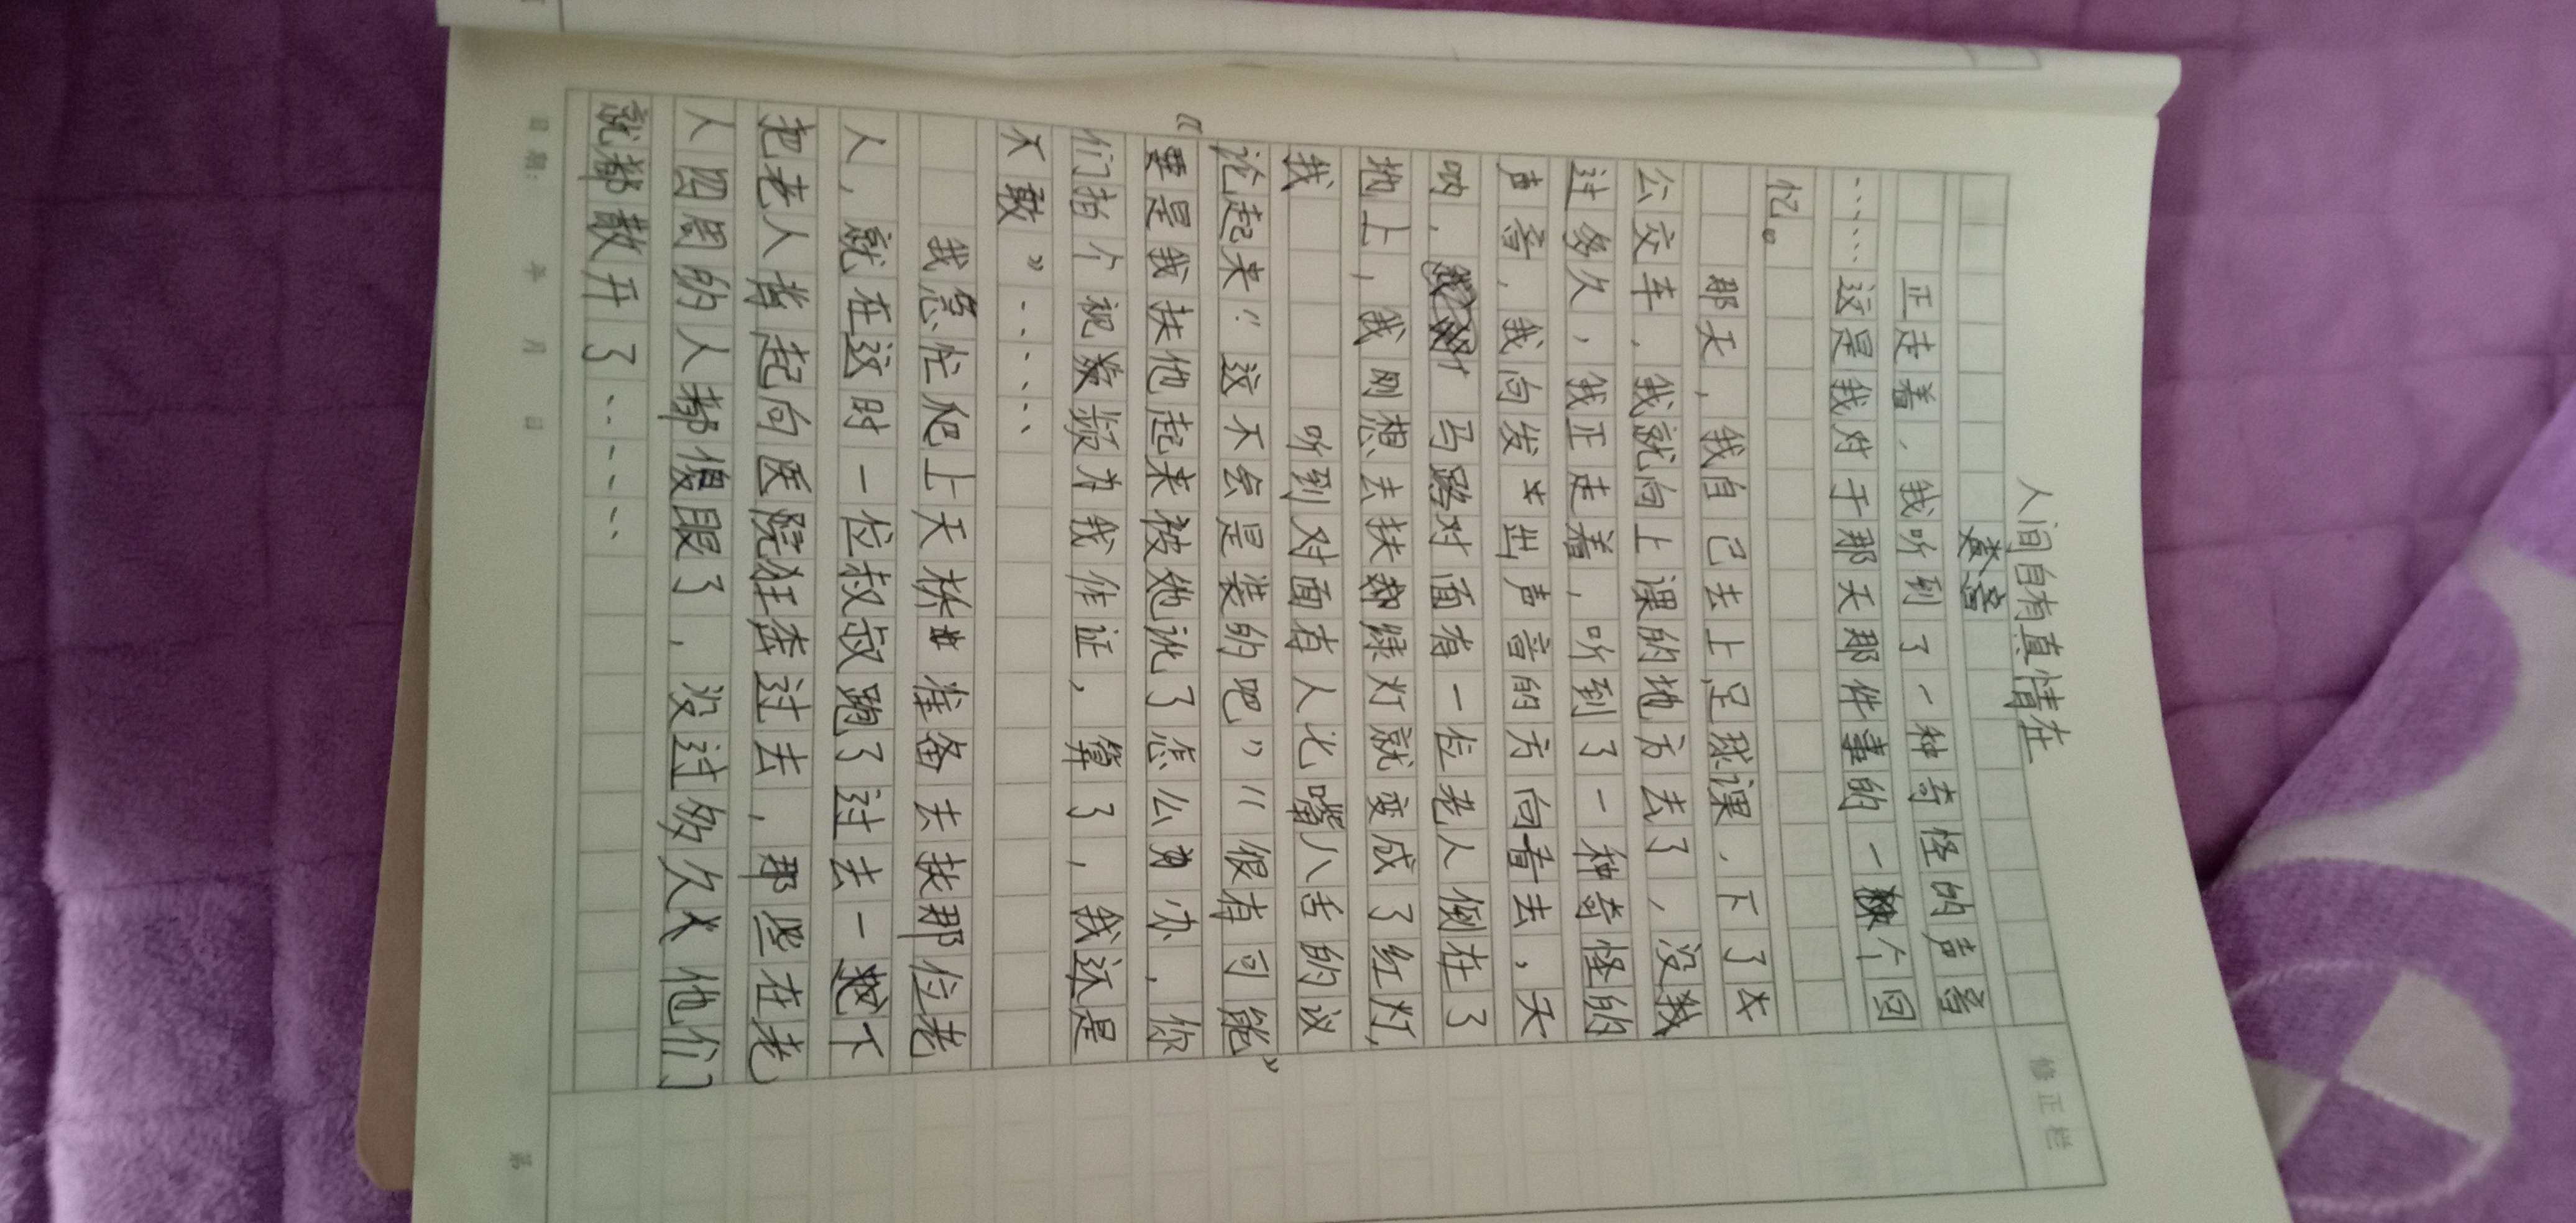 人间自有真情在
修正栏
正走着，我听到了一种奇怪的声音
……这是我对于那天那件事的一个回
忆。
那天，我自己去上足球课，下了
公交车，我就向上课的地方去了，没
过多久，我正走着，听到了一种奇怪的
声音，我向发出声音的方向看去，天
呐，马路对面有一位老人倒在了
地上，我刚想去扶绿灯就变成了红灯，
我
听到对面有人七嘴八舌的议
论起来“这不会是装的吧”“很有可能”
“要是我扶他起来被他讹了怎么办，你
们拍个视频为我作证，算了，我还是
不敢”……
我急忙爬上天桥准备去扶那位老
人，就在这时一位叔叔跑了过去一下
把老人背起向医院狂奔过去，那些在老
人四周的人都傻眼了，没过多久他们
就都散开了……
日期： 年 月 日
第